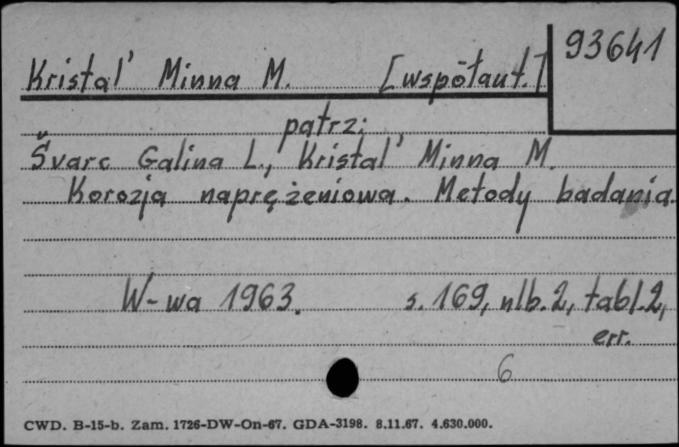 93641
Kristal' Minna M. [współaut.]
patrz:
Švarc Galina L., Kristal' Minna M.
Korozja naprężeniowa. Metody badania.
W-wa 1963. s. 169, nlb. 2, tabl. 2,
err.
6
CWD. B-15-b. Zam. 1726-DW-On-67. GDA-3198. 8.11.67. 4.630.000.